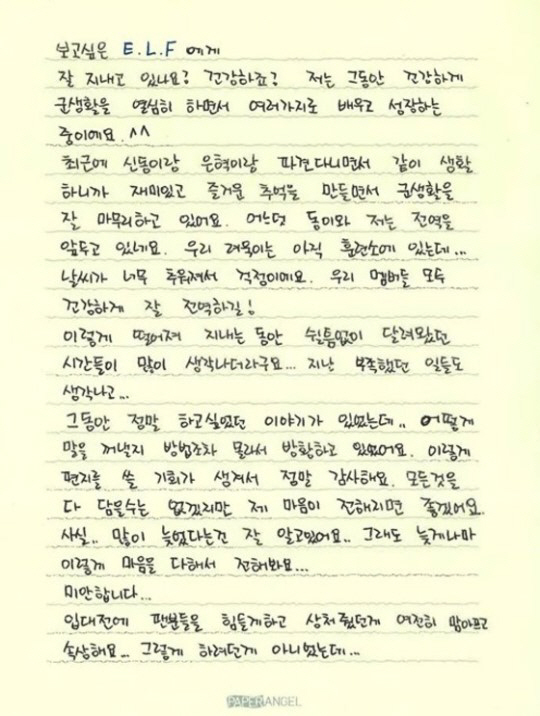 보고싶은 E.L.F 에게
잘 지내고 있나요? 건강하죠? 저는 그동안 건강하게
군생활을 열심히 하면서 여러가지로 배우고 성장하는
중이에요. ^^
최근에 신동이랑 은혁이랑 파견다니면서 같이 생활
하니까 재미있고 즐거운 추억을 만들면서 군생활을
잘 마무리하고 있어요. 어느덧 동이와 저는 전역을
앞두고 있네요. 우리 려욱이는 아직 훈련소에 있는데...
날씨가 너무 추워져서 걱정이에요. 우리 멤버들 모두
건강하게 잘 전역하길!
이렇게 떨어져 지내는 동안 쉼틈없이 달려왔던
시간들이 많이 생각나더라구요... 지난 부족했던 일들도
생각나고...
그동안 정말 하고싶었던 이야기가 있었는데.. 어떻게
말을 꺼낼지 방법조차 몰라서 방황하고 있었어요. 이렇게
편지를 쓸 기회가 생겨서 정말 감사해요. 모든것을
다 담을수는 없겠지만 제 마음이 전해지면 좋겠어요.
사실.. 많이 늦었다는건 잘 알고있어요.. 그래도 늦게나마
이렇게 마음을 다해서 전해봐요...
미안합니다...
입대전에 팬분들을 힘들게하고 상처줬던게 여전히 맘아프고
속상해요... 그렇게 하려던게 아니었는데...
PAPERANGEL